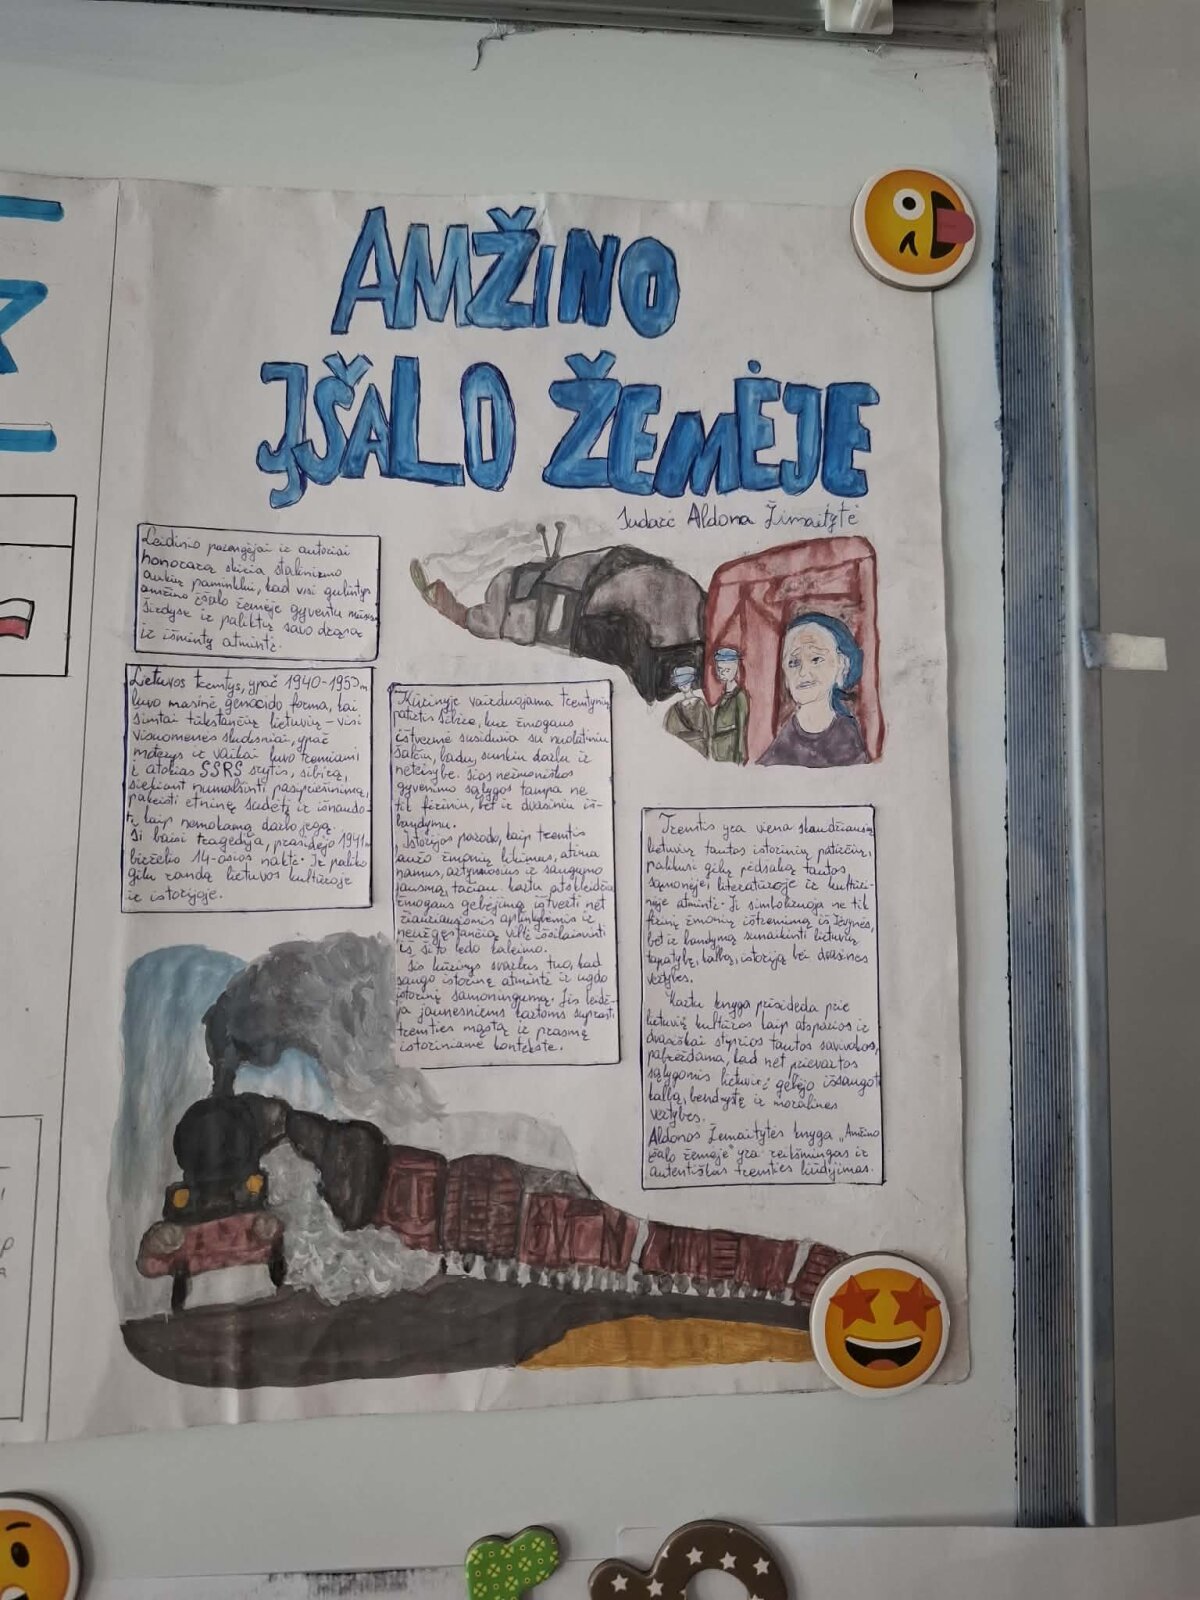 AMŽINO
ĮŠALO ŽEMĖJE
Sudarė Aldona Žemaitytė
Leidinio parengėjai ir autoriai
honorarą skiria stalinizmo
aukų paminklui, kad visi gulintys
amžino įšalo žemėje gyventų mūsų
širdyse ir paliktų savo drąsą
ir išmintį atmintį.
Lietuvos tremtys, ypač 1940-1953m
buvo masinė genocido forma, kai
šimtai tūkstančių lietuvių – visi
visuomenės sluoksniai, ypač
moterys ir vaikai buvo tremiami
į atokias SSRS sritis, sibirą,
siekiant numalšinti pasipriešinimą,
pakeisti etninę sudėtį ir išnaudo-
ti kaip nemokamą darbo jėgą.
Ši baisi tragedija, prasidėjo 1941m
birželio 14-osios naktį. Ir paliko
gilų randą lietuvos kultūroje
ir istorijoje.
Kūrinyje vaizduojama tremtinių
patirtis sibire, kur žmogaus
ištvermė susiduria su nuolatiniu
šalčiu, badu, sunkiu darbu ir
neteisybe. Šios nežmoniškos
gyvenimo sąlygos tampa ne
tik fiziniu, bet ir dvasiniu iš-
bandymu.
Istorijos parodo, kaip tremtis
likimus, atima
namus, artymuosius ir saugumo
jausmą, tačiau kartu atskleidžia
žmogaus gebėjimą ištverti net
žiauriausiomis aplinkybėmis ir
neužgęstančią viltį išsilaisvinti
iš šito ledo kalėjimo.
Šis kūrinys svarbus tuo, kad
saugo istorinę atmintį ir ugdo
istorinį samoningumą. Jis leidž-
ia jaunesniems kartoms suprasti
tremties mąstą ir prasmę
istoriniame kontekste.
Tremtis yra viena skaudžiausių
lietuvių tautos istorinių patirčių,
palikusi gilų pėdsaką tautos
samonėje, literatūroje ir kultūri-
nėje atmintį. Ji simbolizuoja ne tik
fizinį žmonių ištremimą iš Tėvynės,
bet ir bandymą sunaikinti lietuvių
tapatybę, kalbą, istoriją bei dvasines
vertybes.
Kartu knyga prisideda prie
lietuvių kultūros kaip atsparios ir
dvasiškai stiprios tautos savivokos,
pabrėždama, kad net prievartos
sąlygomis lietuviai gebėjo išsaugoti
kalbą, bendrystę ir moralines
vertybes.
Aldonos Žemaitytės knyga „Amžino
įšalo žemėje" yra reikšmingas ir
autentiškas tremties liūdijimas.